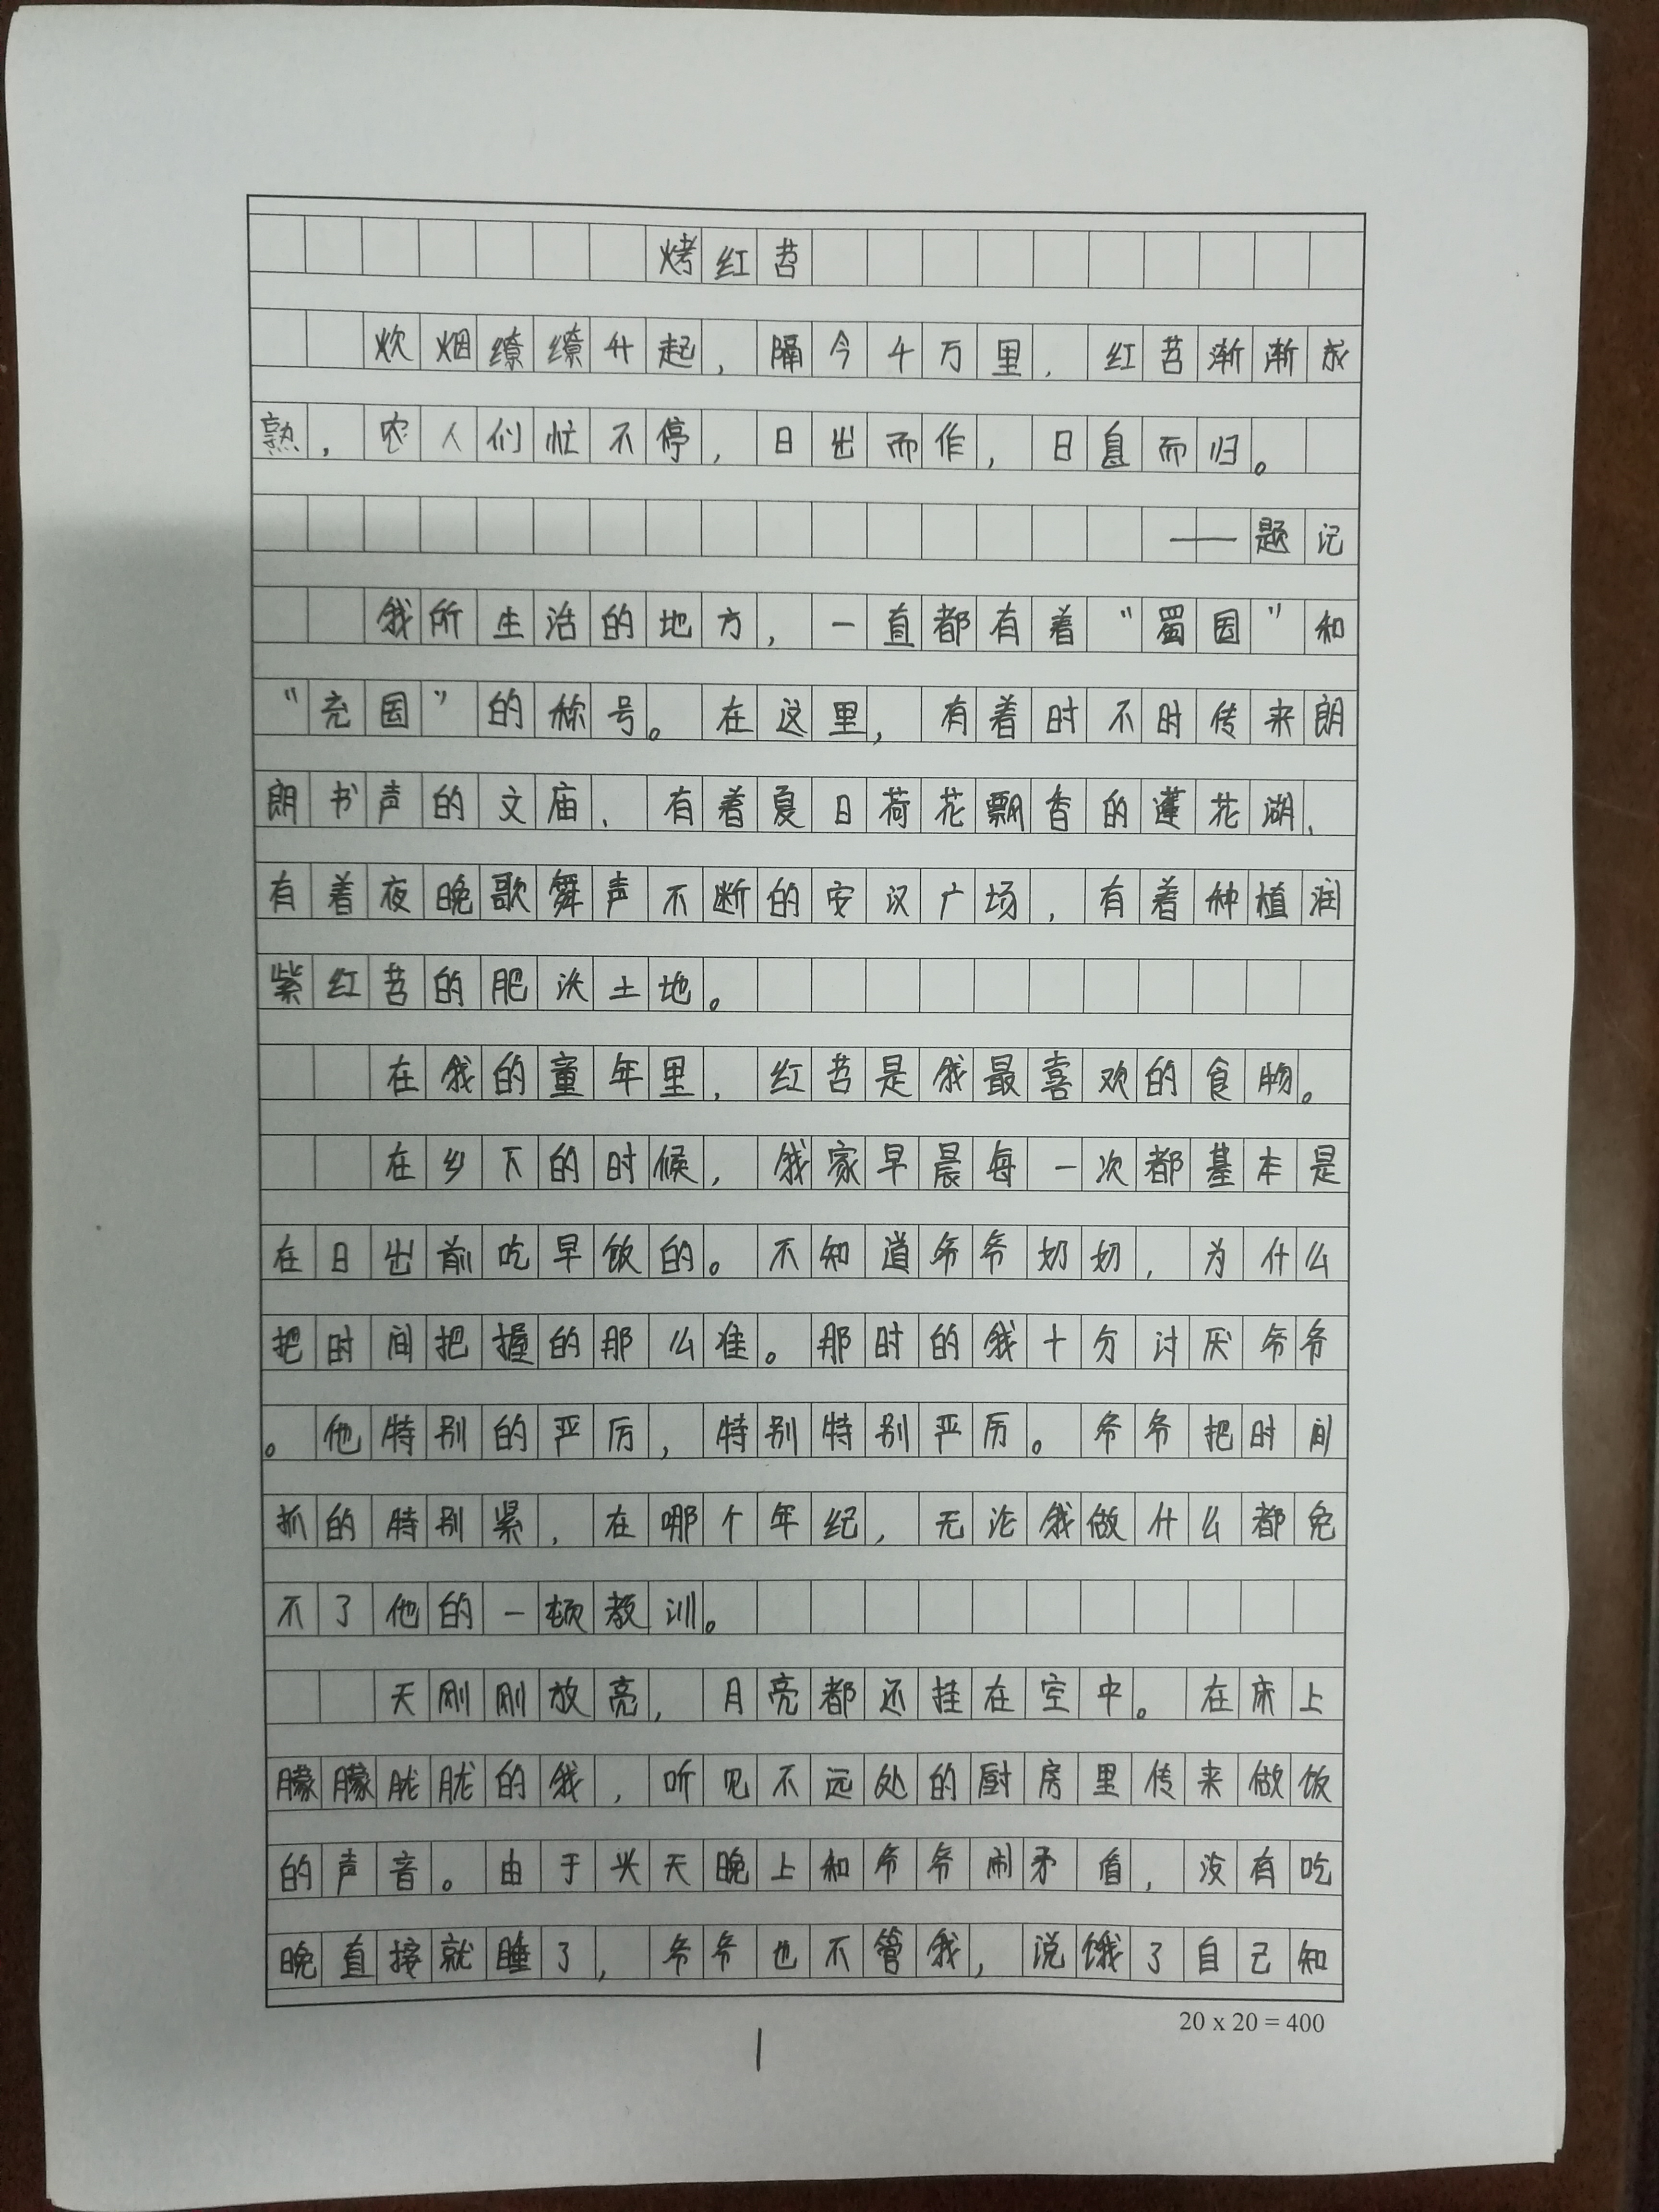 烤红苕
炊烟缭缭升起，隔今千万里，红苕渐渐成
熟，农人们忙不停，日出而作，日息而归。
——题记
我所生活的地方，一直都有着“蜀园”和
“充园”的称号。在这里，有着时不时传来朗
朗书声的文庙，有着夏日荷花飘香的莲花湖，
有着夜晚歌舞声不断的安汉广场，有着种植润
紫红苕的肥沃土地。
在我的童年里，红苕是我最喜欢的食物。
在乡下的时候，我家早晨每一次都基本是
在日出前吃早饭的。不知道爷爷奶奶，为什么
把时间把握的那么准。那时的我十分讨厌爷爷
。他特别的严厉，特别特别严厉。爷爷把时间
抓的特别紧，在哪个年纪，无论我做什么都免
不了他的一顿教训。
天刚刚放亮，月亮都还挂在空中。在床上
朦朦胧胧的我，听见不远处的厨房里传来做饭
的声音。由于当天晚上和爷爷闹矛盾，没有吃
晚直接就睡了，爷爷也不管我，说饿了自己知
20 x 20 = 400
1